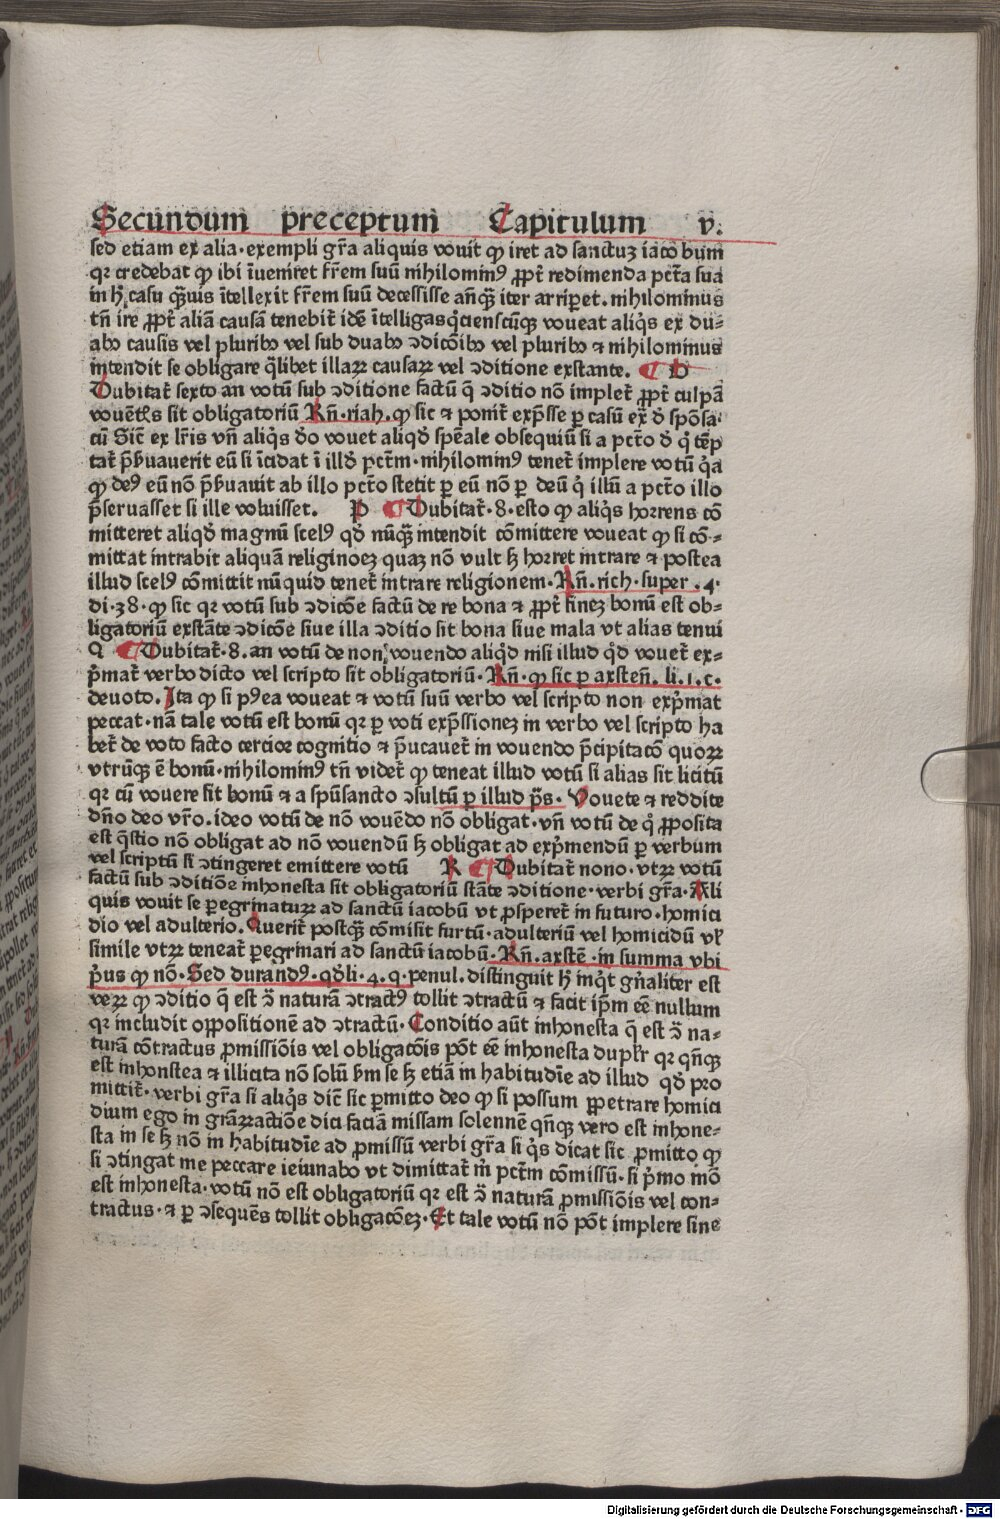 Secundum preceptum Capitulum v.
sed etiam ex alia·exempli gr̃a aliquis vouit ꝙ iret ad sanctuȝ iaco bum
qꝛ credebat ꝙ ibi īueniret fr̃em suū nihilominꝰ ꝓpt̃ redimenda pct̃a sua
in h̰ casu qᷓuis ītellexit fr̃em suū decessisse añqᷓ iter arriꝑet.nihilominus
tñ ire ꝓpt̃ aliā causā tenebit̃ idē ītelligas qͦciensc̄ūqꝫ voueat aliqͥs ex du⸗
abꝰ causis vel pluribꝰ vel sub duabꝰ ꝯdicōibꝰ vel pluribꝰ ⁊ nihilominus
intendit se obligare qͣlibet illaꝝ causaꝝ vel ꝯditione exstante. ¶ O
Dubitat̃ sexto an votū sub ꝯditione factū q̄ ꝯditio nō implet̃ ꝓpt̃ culpā
vouēt̃s sit obligatoriū Rñ·riah.ꝙ sic ⁊ ponit̃ exp̄sse ꝑ casū ex̃ đ spōsa·
cū Sic̃ ex lr̃is vñ aliqͥs đo vouet aliqđ spēale obsequiū si a pct̃o đ qͦ tēp
tat̃ p̄ẞuauerit eū si īcidat ī illđ pct̃m·nihilominꝰ tenet̃ implere votū qͥa
ꝙ deꝰ eū nō p̄ẞuauit ab illo pct̃o stetit ꝑ eū nō ꝑ deū qͥ illū a pct̃o illo
p̄seruasset si ille voluisset. P ¶ Dubitat̃·8·esto ꝙ aliqͥs horrens cō
mitteret aliqđ magnū scelꝰ qđ nūqᷓ intendit cōmittere voueat ꝙ si cō·⸗
mittat intrabit aliquā religinoeȝ quaȝ nō vult sȝ horret intrare ⁊ postea
illud scelꝰ cōmittit nūquid tenet̃ intrare religionem·Rñ.rich·super .4·
di·38·ꝙ sic qꝛ votū sub ꝯdicōe factū de re bona ⁊ ꝓpt̃ fineȝ bonū est ob⸗
ligatoriū exstāte ꝯdicōe siue illa ꝯditio sit bona siue mala vt alias tenui
Q ¶ Dubitat̃·8.an votū de non vouendo aliqͥd nisi illud qͦd vouet̃ ex⸗
pͥmat̃ verbo dicto vel scripto sit obligatoriū·Rñ·ꝙ sic ꝑ axsteñ.li.1.c.
deuoto. Ita ꝙ si pꝰea voueat ⁊ votū suū verbo vel scripto non expͥmat
peccat·nā tale votū est bonū qꝛ ꝑ voti exp̄ssioneȝ in verbo vel scripto ha
bet̃ de voto facto cercior cognitio ⁊ p̄ucauet̃ in vouendo p̄cipitacō quoꝝ
vtrūqꝫ ē bonū·nihilominꝰ tñ videt̃ ꝙ teneat illud votū si alias sit licitū
qꝛ cū vouere sit bonū ⁊ a spūsancto ꝯsultū ꝑ illud p̄s. Vouete ⁊ reddite
dño deo vr̃o.ideo votū de nō vouēdo nō obligat·vñ votū de qͦ ꝓposita
est q̄stio nō obligat ad nō vouendū sȝ obligat ad expͥmendū ꝑ verbum
vel scriptū si ꝯtingeret emittere votū R ¶ Dubitat̃ nono·vtꝝ votū
factū sub ꝯditiōe inhonesta sit obligatoriū stāte ꝯditione·verbi gr̃a·Ali
quis vouit se ꝑegrinaturꝝ ad sanctū iacobū vt ꝓsperet̃ in futuro·homici
dio vel adulterio. Querit̃ postqᷓ cōmisit furtū·adulteriū vel homicidū vl̃
simile vtꝝ teneat̃ ꝑegrinari ad sanctū iacobū·Rñ.axstē·in summa vbi
pͥus ꝙ nō·Sed durandꝰ·qđli·4·q·penul.distinguit h̰ inqͥt gñaliter est
veꝝ ꝙ ꝯditio q̄ est ꝯ̄ naturā ꝯtractꝰ tollit ꝯtractū ⁊ facit ip̄m eē nullum
qꝛ includit oppositionē ad ꝯtractū·Conditio aūt inhonesta q̄ est ꝯ̄ na⸗
turā cōtractus ꝓmissiōis vel obligatōis pōt eē inhonesta dupl̃r qꝛ qñqꝫ
est inhonstea ⁊ illicita nō solū ẞm se sȝ etiā in habitudīe ad illud qđ pro
mittit̃·verbi gr̃a si aliqͥs dic̃ sic ꝓmitto deo ꝙ si possum ꝑpetrare homici
dium ego in gr̄aꝝactiōe dici faciā missam solennē qñqꝫ vero est inhone⸗
sta in se sȝ nō in habitudīe ad ꝓmissū verbi gr̃a si qͥs dicat sic ꝓmitto ꝙ
si ꝯtingat me peccare ieiunabo vt dimittat̃ mͥ pct̃m cōmissū·si pͥmo mō
est inhonesta·votū nō est obligatoriū qꝛ est ꝯ̄ naturā ꝓmissiōis vel con⸗
tractus·⁊ ꝑ ꝯsequēs tollit obligatōeȝ·Et tale votū nō pōt implere sine
Digitalisierung gefördert durch die Deutsche Forschungsgemeinschaft - DFG